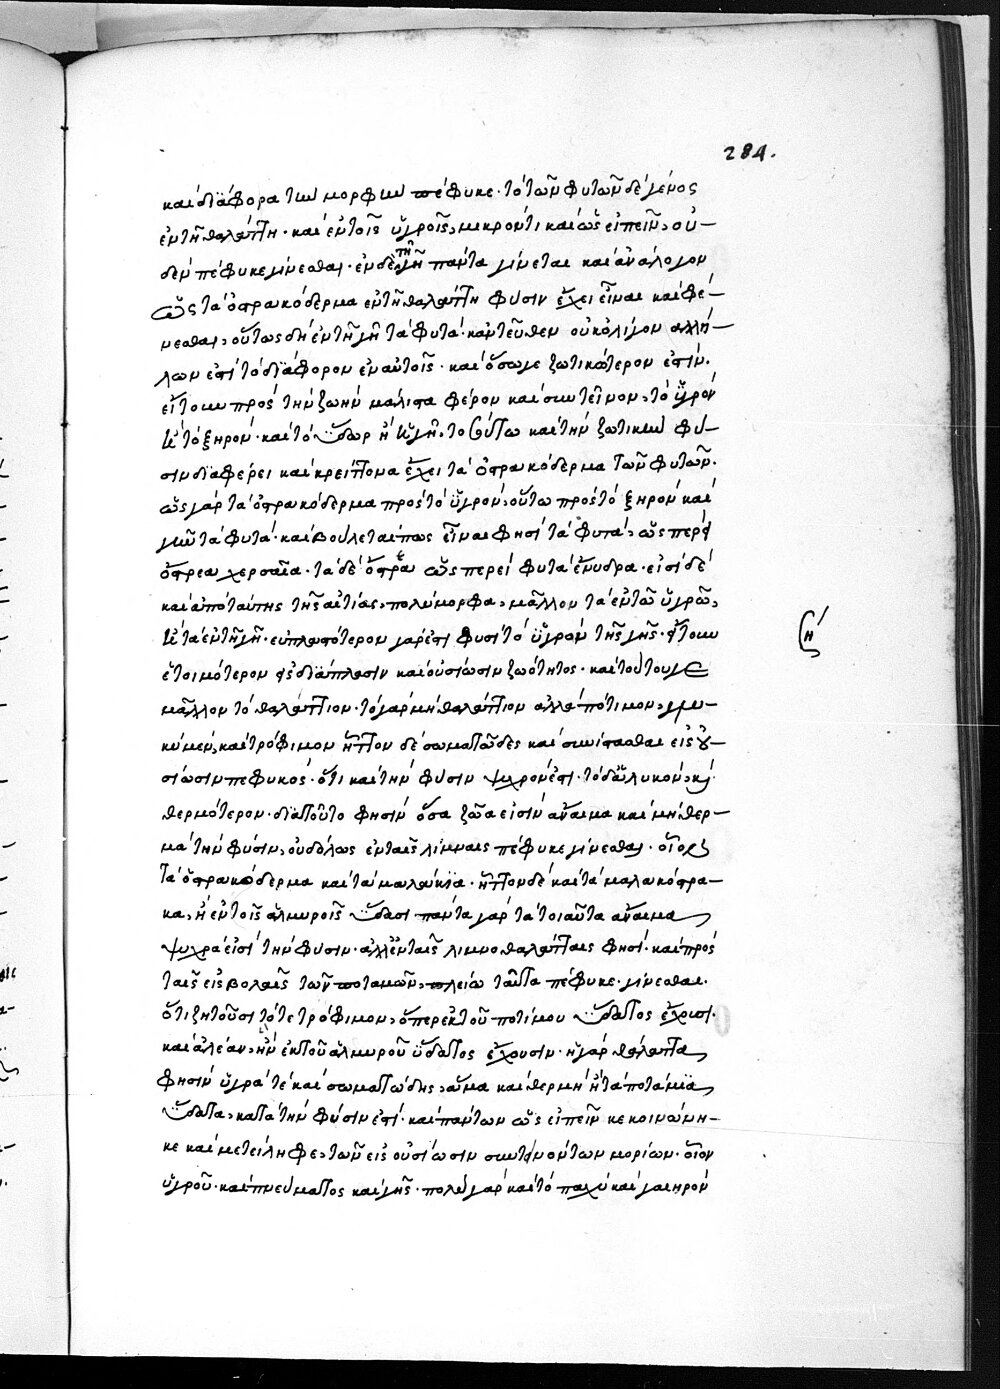 284.
καὶ διάφορα τὴν μορφὴν πέφυκε· τὸ τῶν φυτῶν δὲ γένος
ἐν τῇ θαλάττῃ· καὶ ἐν τοῖς ὑγροῖς, μικρόν τι καὶ ὡς εἰπεῖν, οὐ-
δὲν πέφυκε γίνεσθαι· ἐν δὲ τῇ γῇ πάντα γίνεται καὶ ἀνάλογον
ὡς τὰ ὀστρακόδερμα ἐν τῇ θαλάττῃ φύσιν ἔχει εἶναι καὶ φέ-
νεσθαι, οὕτως δὴ ἐν τῇ γῇ τὰ φυτά· κἀντεῦθεν οὐκ ὀλίγον ἀλλή-
λων ἐστὶ τὸ διάφορον ἐν αὐτοῖς· καὶ ὅσω γε ζωτικώτερον ἐστὶν.
εἴτουν πρὸς τὴν ζωὴν μάλιστα φέρον καὶ συντεῖνον, τὸ ὑγρὸν
ἢ τὸ ξηρόν· καὶ τὸ ὕδωρ ἢ ἡ γῆ, τοσούτω κατὰ τὴν ζωτικὴν φύ-
σιν διαφέρει καὶ κρείττονα ἔχει τὰ ὀστρακόδερμα τῶν φυτῶν.
ὡς γὰρ τὰ ὀστρακόδερμα πρὸς τὸ ὑγρόν, οὕτω πρὸς τὸ ξηρὸν καὶ
γῆν τὰ φυτά· καὶ βούλεταί πως εἶναι φησὶ τὰ φυτά, ὡς περεὶ
ὄστρεα χερσαῖα· τὰ δὲ ὄστρεα ὡς περεὶ φυτὰ ἔνυδρα· εἰσὶ δὲ
καὶ ἀπὸ ταύτης τῆς αἰτίας, πολύμορφα, μᾶλλον τὰ ἐν τῶ ὑγρῶ,
ἢ τὰ ἐν τῇ γῇ· εὐπλαστότερον γάρ ἐστι φύσει τὸ ὑγρὸν τῆς γῆς· ἤτουν
ἑτοιμότερον πρὸς διάπλασιν καὶ οὐσίωσιν ζωότητος· καὶ τούτου γε
μᾶλλον τὸ θαλάττιον· τὸ γὰρ μὴ θαλάττιον ἀλλὰ πότιμον, γλυ-
κὺ μὲν, καὶ τρόφιμον ἧττον δὲ σωματῶδες καὶ συνίστασθαι εἰς οὐ-
σίωσιν πεφυκός· ὅτι καὶ τὴν φύσιν ψυχρόν ἐστι· τὸ δ' ἁλυκόν, καὶ
θερμότερον· διὰ τοῦτο φησὶν ὅσα ζῶα εἰσὶν ἄναιμα καὶ μὴ θερ-
μὰ τὴν φύσιν, οὐδόλως ἐν ταῖς λίμναις πέφυκε γίνεσθαι· οἷον
τὰ ὀστρακόδερμα καὶ τὰ μαλάκια· ἧττον δὲ καὶ τὰ μαλακόστρα-
κα, ἢ ἐν τοῖς ἁλμυροῖς ὕδασι πάντα γὰρ τὰ τοιαῦτα ἄναιμα
ψυχρὰ εἰσὶ τὴν φύσιν· ἀλλ' ἐν ταῖς λιμνοθαλάτταις φησί· καὶ πρὸς
ταῖς εἰσβολαῖς τῶν ποταμῶν, πλείω ταῦτα πέφυκε· γίνεσθαι.
ὅτι ζητοῦσι τό τε τρόφιμον, ὅπερ ἐκ τοῦ ποτίμου ὕδατος ἔχουσι·
καὶ ἀλέαν, ἣν ἐκ τοῦ ἁλμυροῦ ὕδατος ἔχουσιν· ἡ γὰρ θάλαττα
φησὶν ὑγρά τε καὶ σωματώδης, ἅμα καὶ θερμὴ ἢ τὰ ποτάμια
ὕδατα, κατὰ τὴν φύσιν ἐστί· καὶ πάντων ὡς εἰπεῖν κεκοινώνη-
κε καὶ μετείληφε, τῶν εἰς οὐσίωσιν συντεινόντων μορίων· οἷον
ὑγροῦ· καὶ πνεύματος καὶ γῆς· πολὺ γὰρ καὶ τὸ παχὺ καὶ γαιηρὸν